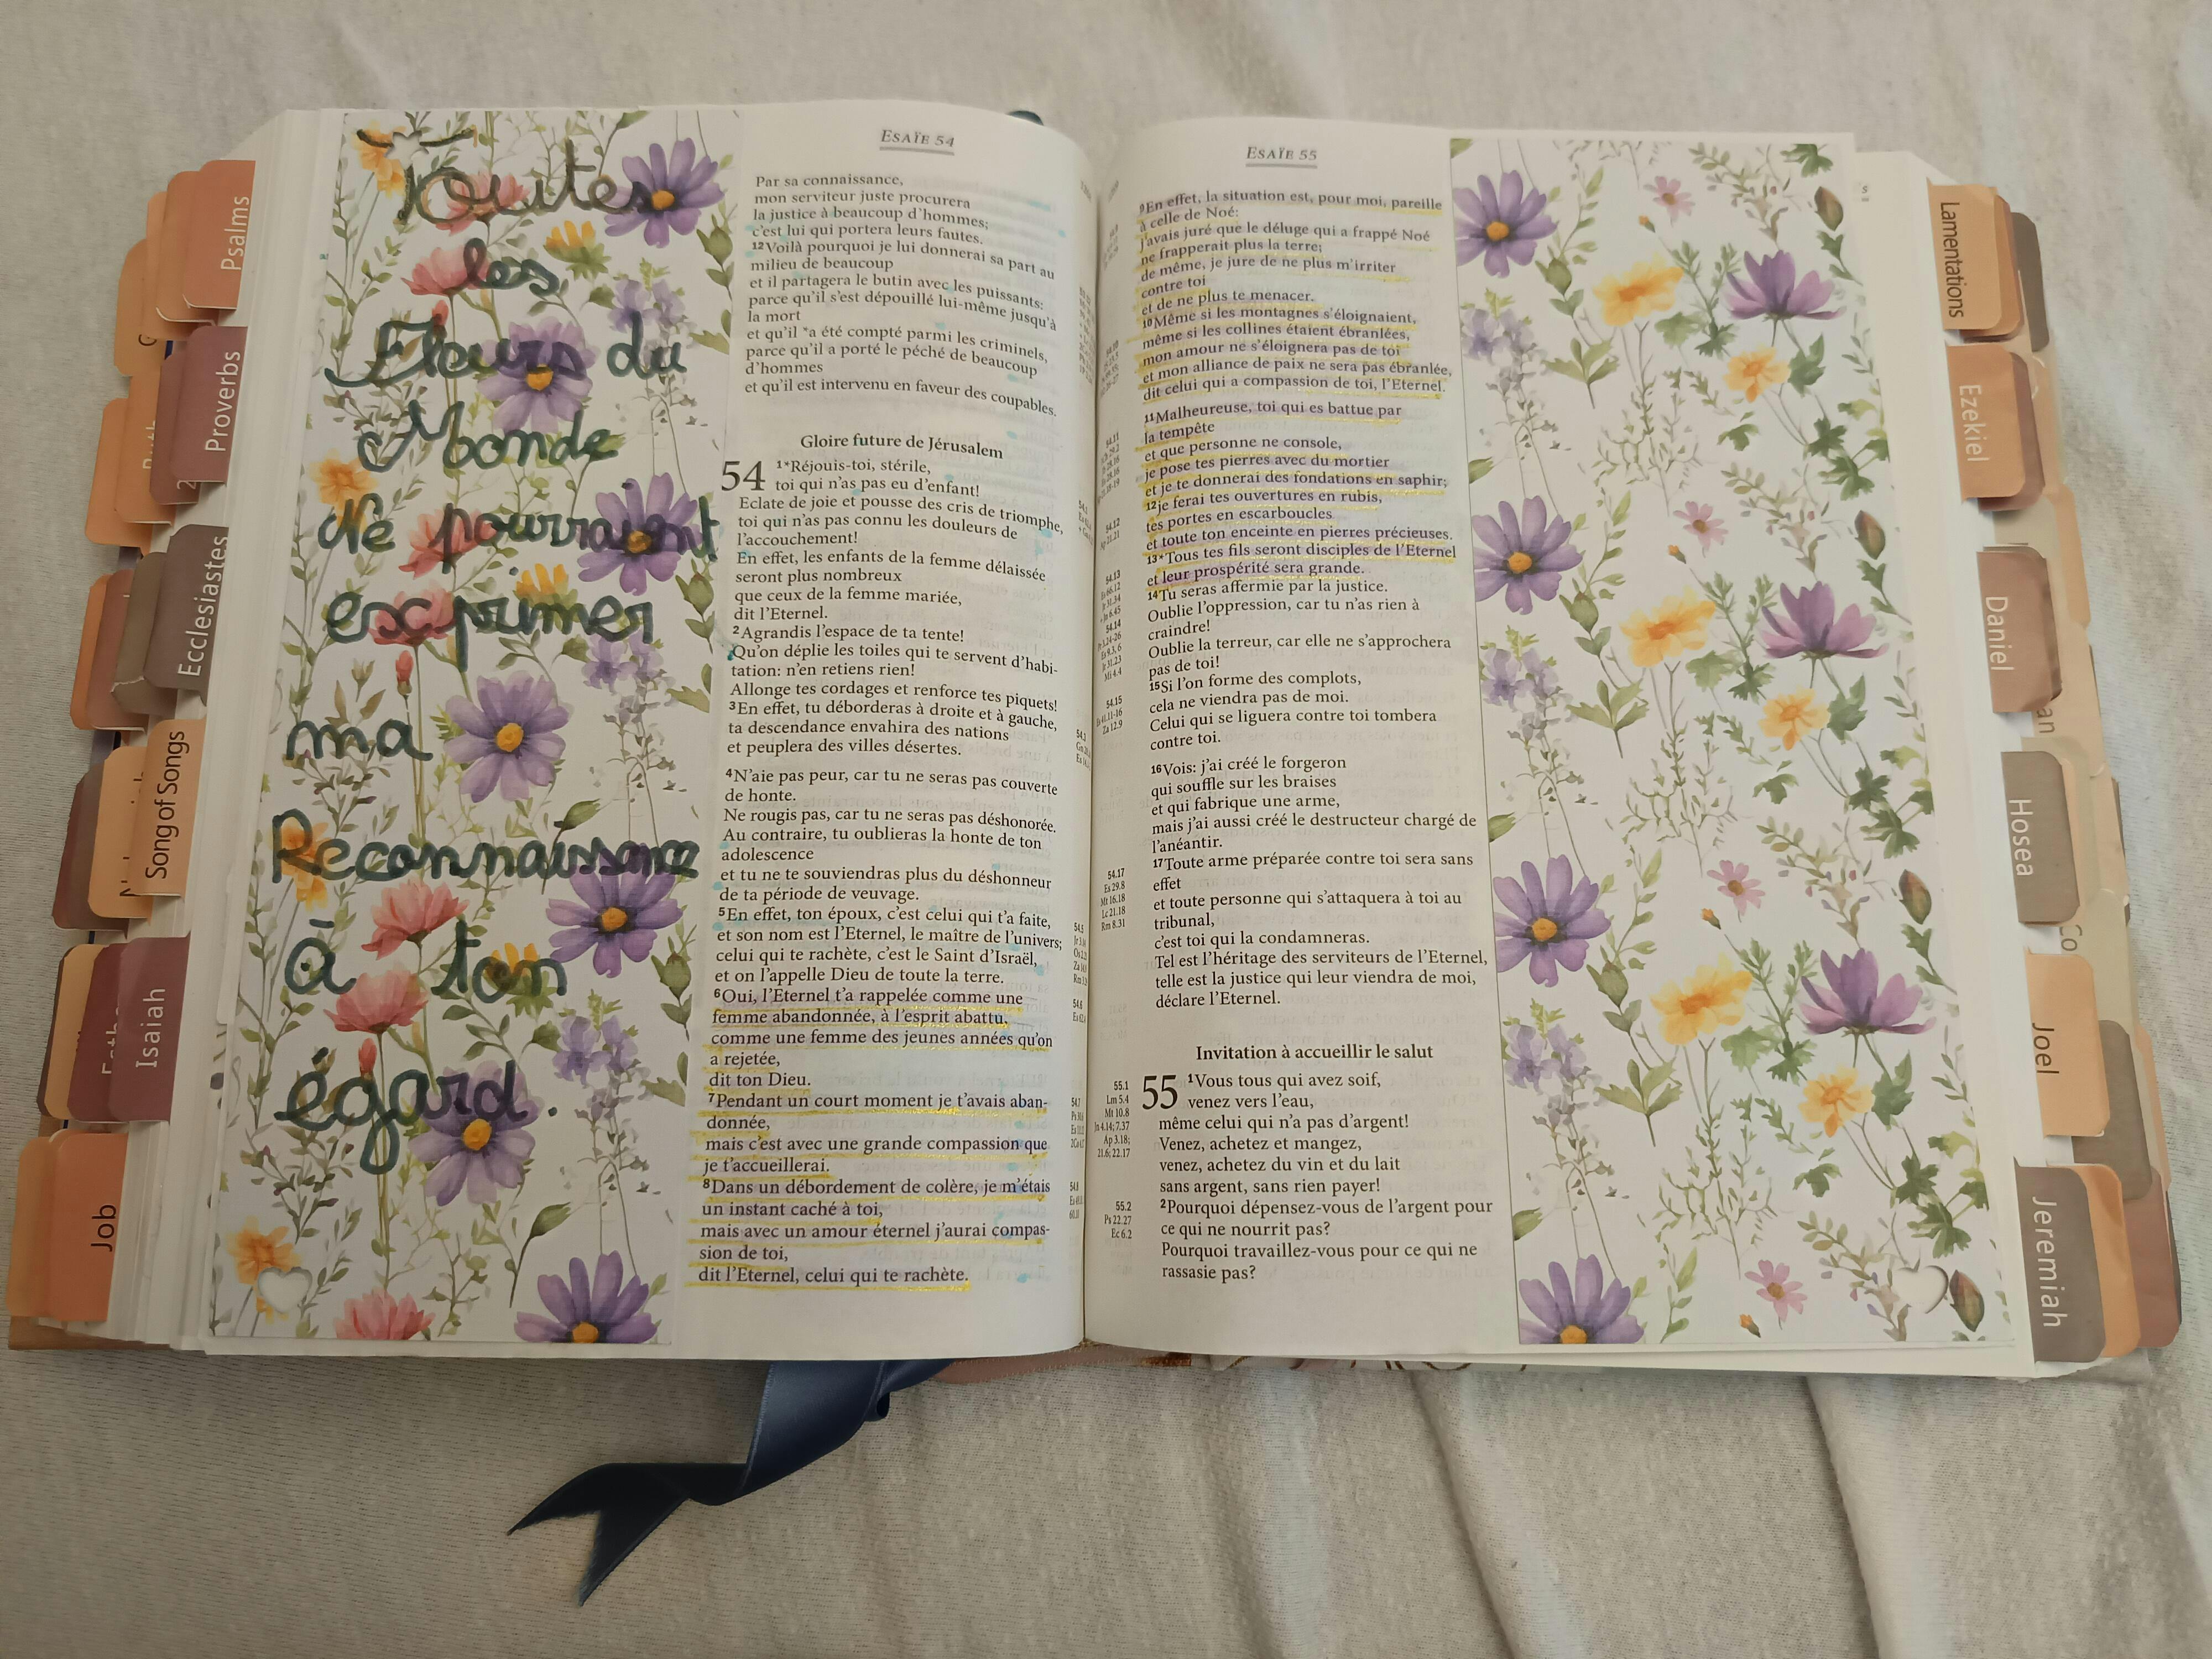 Toutes
les
Fleurs du
Monde
Ne pourraient
exprimer
ma
Reconnaissance
à ton
égard.
ESAÏE 54
Par sa connaissance,
mon serviteur juste procurera
la justice à beaucoup d'hommes;
c'est lui qui portera leurs fautes.
12Voilà pourquoi je lui donnerai sa part au
milieu de beaucoup
et il partagera le butin avec les puissants:
parce qu'il s'est dépouillé lui-même jusqu'à
la mort
et qu'il *a été compté parmi les criminels,
parce qu'il a porté le péché de beaucoup
d'hommes
et qu'il est intervenu en faveur des coupables.
Gloire future de Jérusalem
54 1*Réjouis-toi, stérile,
toi qui n'as pas eu d'enfant!
Eclate de joie et pousse des cris de triomphe,
toi qui n'as pas connu les douleurs de
l'accouchement!
En effet, les enfants de la femme délaissée
seront plus nombreux
que ceux de la femme mariée,
dit l'Eternel.
2Agrandis l'espace de ta tente!
Qu'on déplie les toiles qui te servent d'habi-
tation: n'en retiens rien!
Allonge tes cordages et renforce tes piquets!
3En effet, tu déborderas à droite et à gauche,
ta descendance envahira des nations
et peuplera des villes désertes.
4N'aie pas peur, car tu ne seras pas couverte
de honte.
Ne rougis pas, car tu ne seras pas déshonorée.
Au contraire, tu oublieras la honte de ton
adolescence
et tu ne te souviendras plus du déshonneur
de ta période de veuvage.
5En effet, ton époux, c'est celui qui t'a faite,
et son nom est l'Eternel, le maître de l'univers;
celui qui te rachète, c'est le Saint d'Israël,
et on l'appelle Dieu de toute la terre.
6Oui, l'Eternel t'a rappelée comme une
femme abandonnée, à l'esprit abattu,
comme une femme des jeunes années qu'on
a rejetée,
dit ton Dieu.
7Pendant un court moment je t'avais aban-
donnée,
mais c'est avec une grande compassion que
je t'accueillerai.
8Dans un débordement de colère, je m'étais
un instant caché à toi,
mais avec un amour éternel j'aurai compas-
sion de toi,
dit l'Eternel, celui qui te rachète.
ESAÏE 55
9En effet, la situation est, pour moi, pareille
à celle de Noé:
j'avais juré que le déluge qui a frappé Noé
ne frapperait plus la terre;
de même, je jure de ne plus m'irriter
contre toi
et de ne plus te menacer.
10Même si les montagnes s'éloignaient,
même si les collines étaient ébranlées,
mon amour ne s'éloignera pas de toi
et mon alliance de paix ne sera pas ébranlée,
dit celui qui a compassion de toi, l'Eternel.
11Malheureuse, toi qui es battue par
la tempête
et que personne ne console,
je pose tes pierres avec du mortier
et je te donnerai des fondations en saphir;
12je ferai tes ouvertures en rubis,
tes portes en escarboucles
et toute ton enceinte en pierres précieuses.
13*Tous tes fils seront disciples de l'Eternel
et leur prospérité sera grande.
14Tu seras affermie par la justice.
Oublie l'oppression, car tu n'as rien à
craindre!
Oublie la terreur, car elle ne s'approchera
pas de toi!
15Si l'on forme des complots,
cela ne viendra pas de moi.
Celui qui se liguera contre toi tombera
contre toi.
16Vois: j'ai créé le forgeron
qui souffle sur les braises
et qui fabrique une arme,
mais j'ai aussi créé le destructeur chargé de
l'anéantir.
17Toute arme préparée contre toi sera sans
effet
et toute personne qui s'attaquera à toi au
tribunal,
c'est toi qui la condamneras.
Tel est l'héritage des serviteurs de l'Eternel,
telle est la justice qui leur viendra de moi,
déclare l'Eternel.
Invitation à accueillir le salut
55 1Vous tous qui avez soif,
venez vers l'eau,
même celui qui n'a pas d'argent!
Venez, achetez et mangez,
venez, achetez du vin et du lait
sans argent, sans rien payer!
2Pourquoi dépensez-vous de l'argent pour
ce qui ne nourrit pas?
Pourquoi travaillez-vous pour ce qui ne
rassasie pas?
54.17
Es 29.8
Mt 16.18
Lc 21.18
Rm 8.31
55.1
Lm 5.4
Mt 10.8
Jn 4.14; 7.37
Ap 3.18;
21.6; 22.17
55.2
Ps 22.27
Ec 6.2
Psalms
Proverbs
Ecclesiastes
Song of Songs
Isaiah
Job
Lamentations
Ezekiel
Daniel
Hosea
Joel
Jeremiah